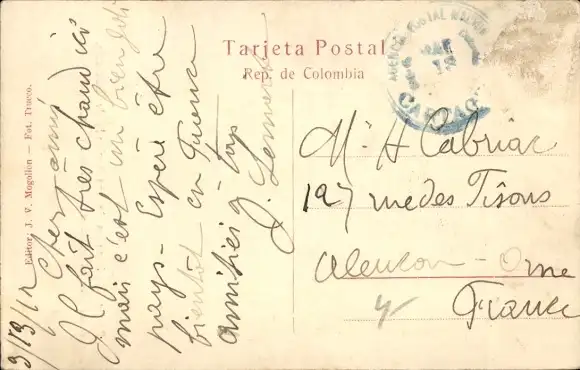 Tarjeta Postal
Rep. de Colombia
Editor: J. V. Mogollon – Fot. Trucco.
AGENCIA POSTAL
MAR
13
3/13/12
Cher ami
Il fait très chaud ici
mais c'est un bien joli
pays – Espère être
bientôt en France
amitiés à tous
J.
Mr A Cabriac
197 rue des Tisons
Alencon – Orne
France